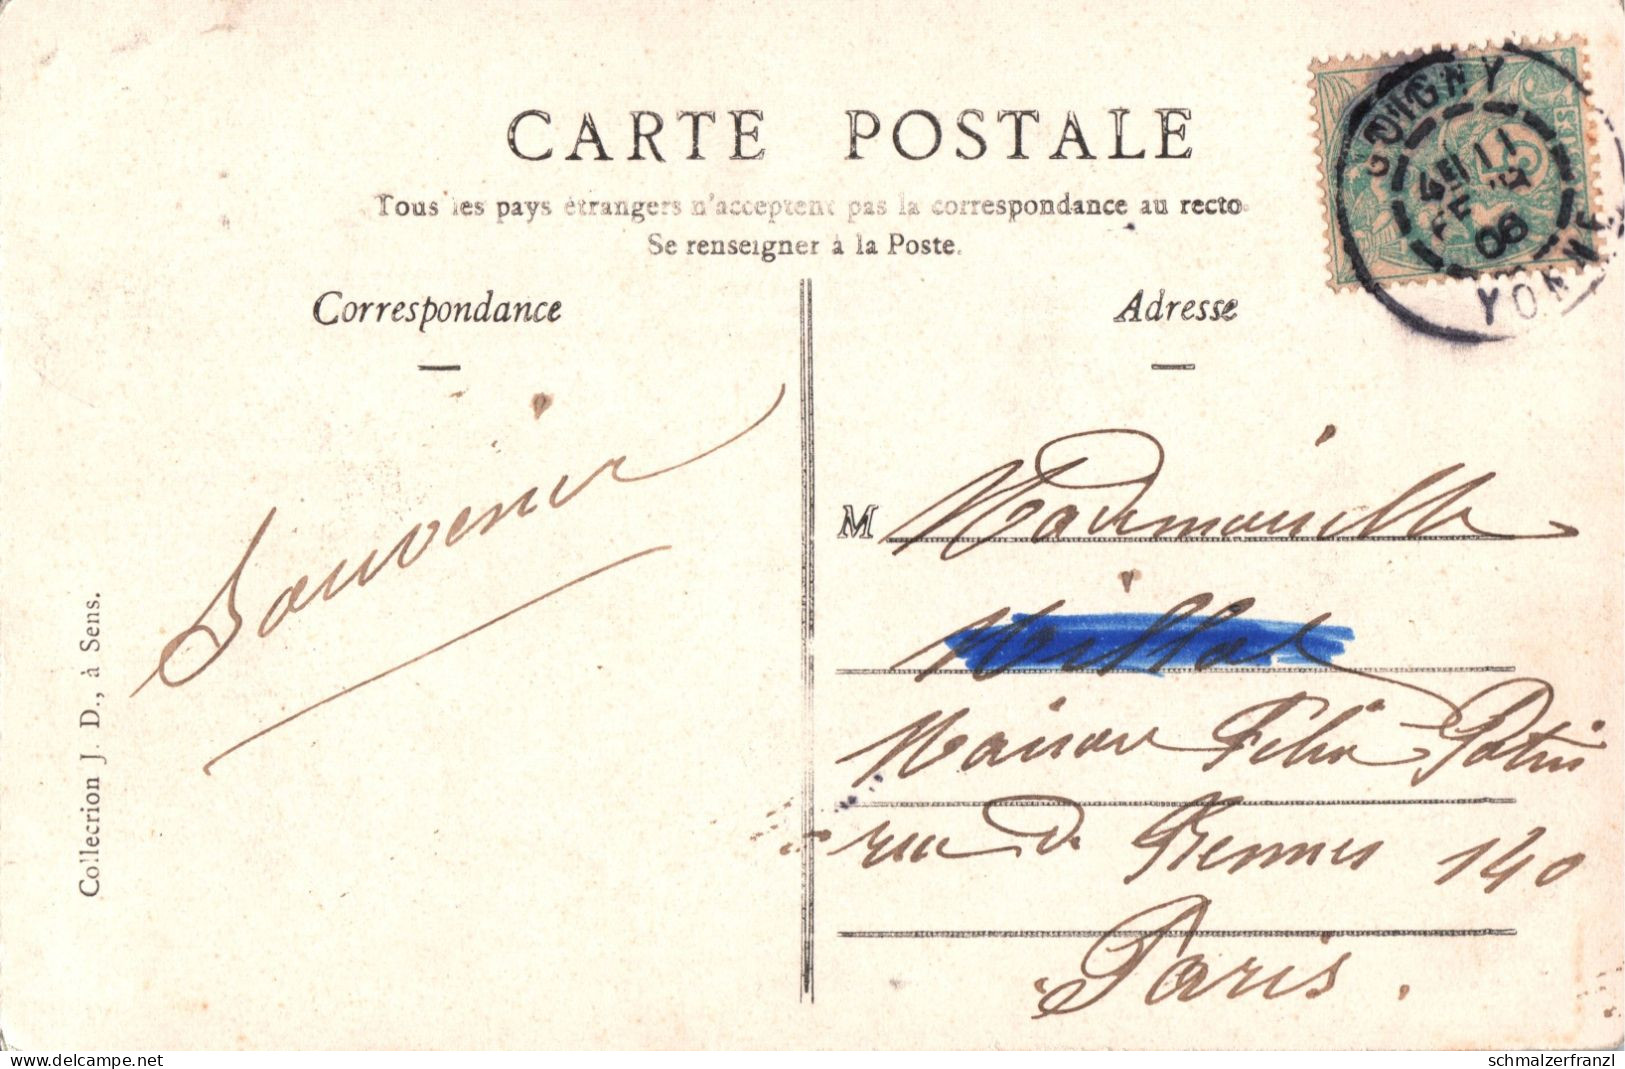 CARTE POSTALE
Tous les pays étrangers n'acceptent pas la correspondance au recto
Se renseigner à la Poste.
Correspondance
Adresse
Souvenir
M Mademoiselle
Maison Félix Potin
rue de Rennes 140
Paris.
Collecrion J. D., à Sens.
YONNE
06
5
schmalzerfranzl
delcampe.net